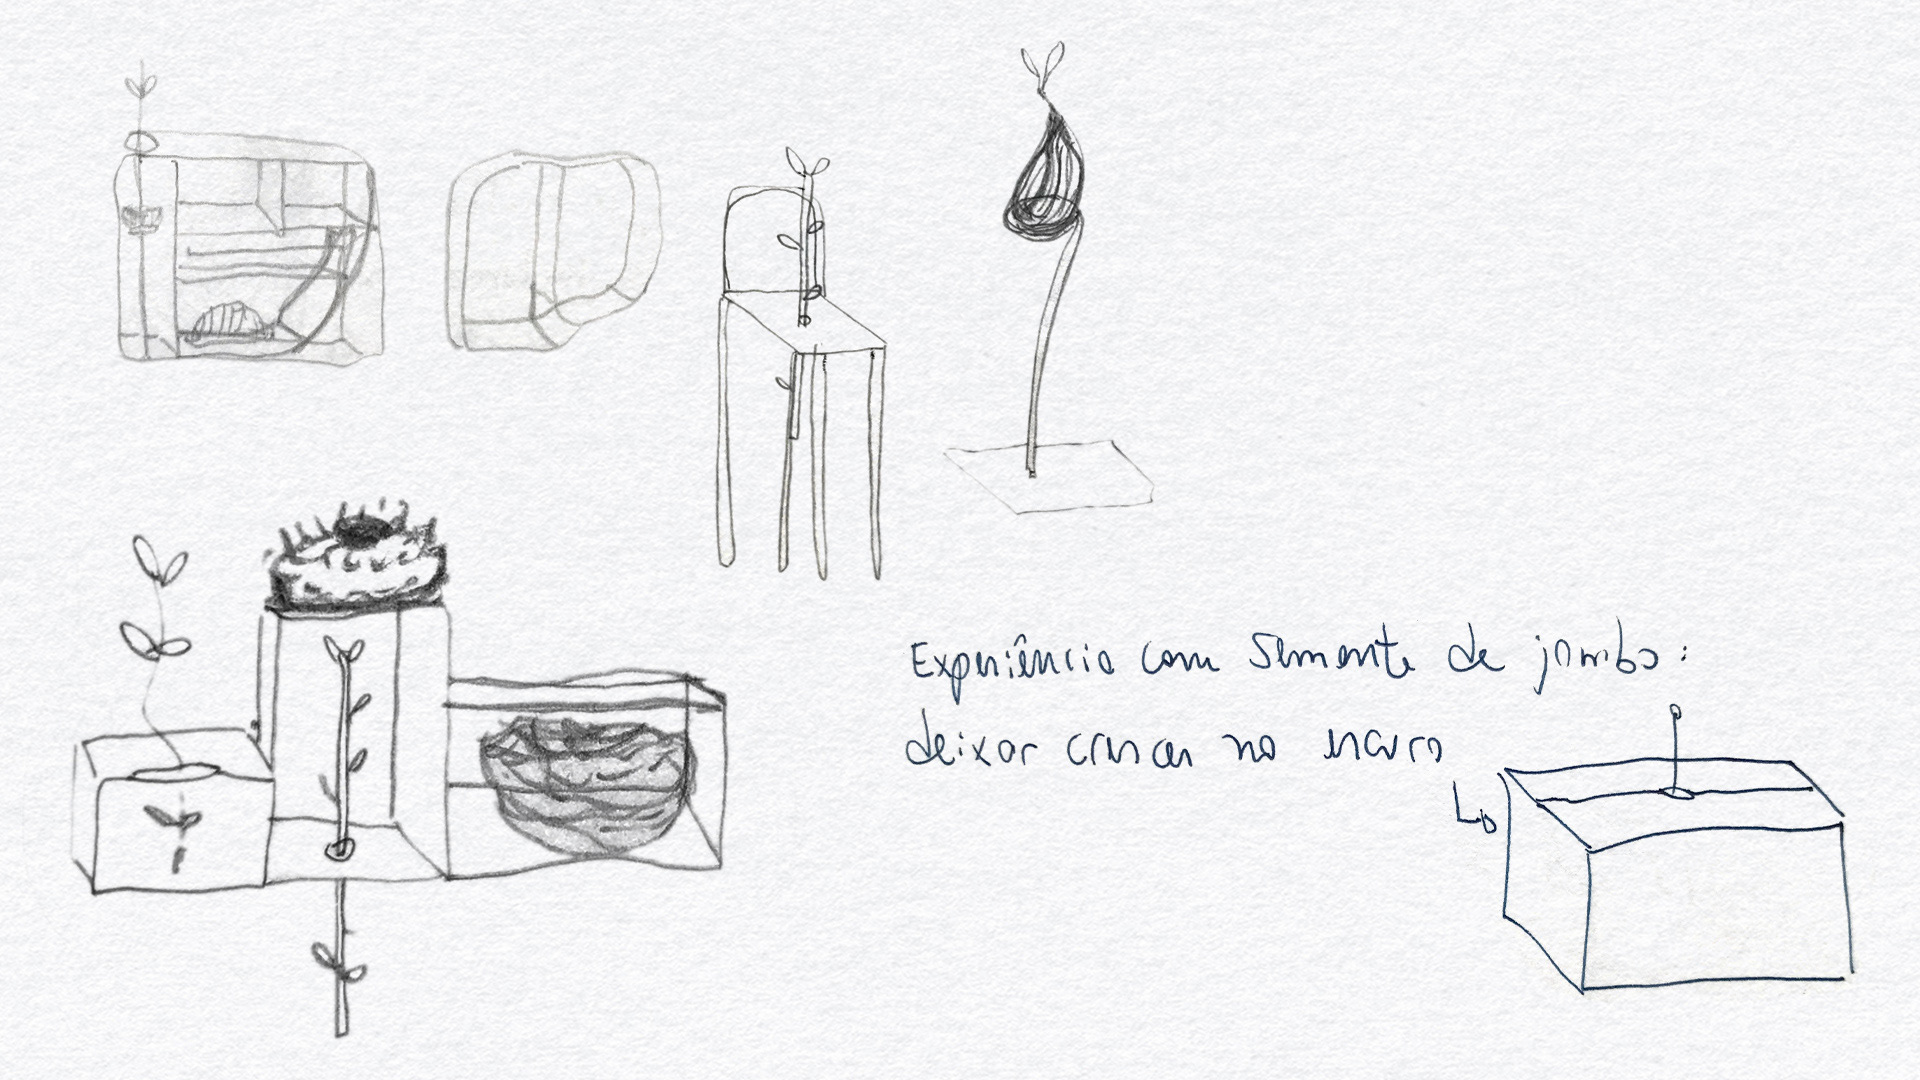 Experiência com semente de jambo:
deixar crescer no escuro